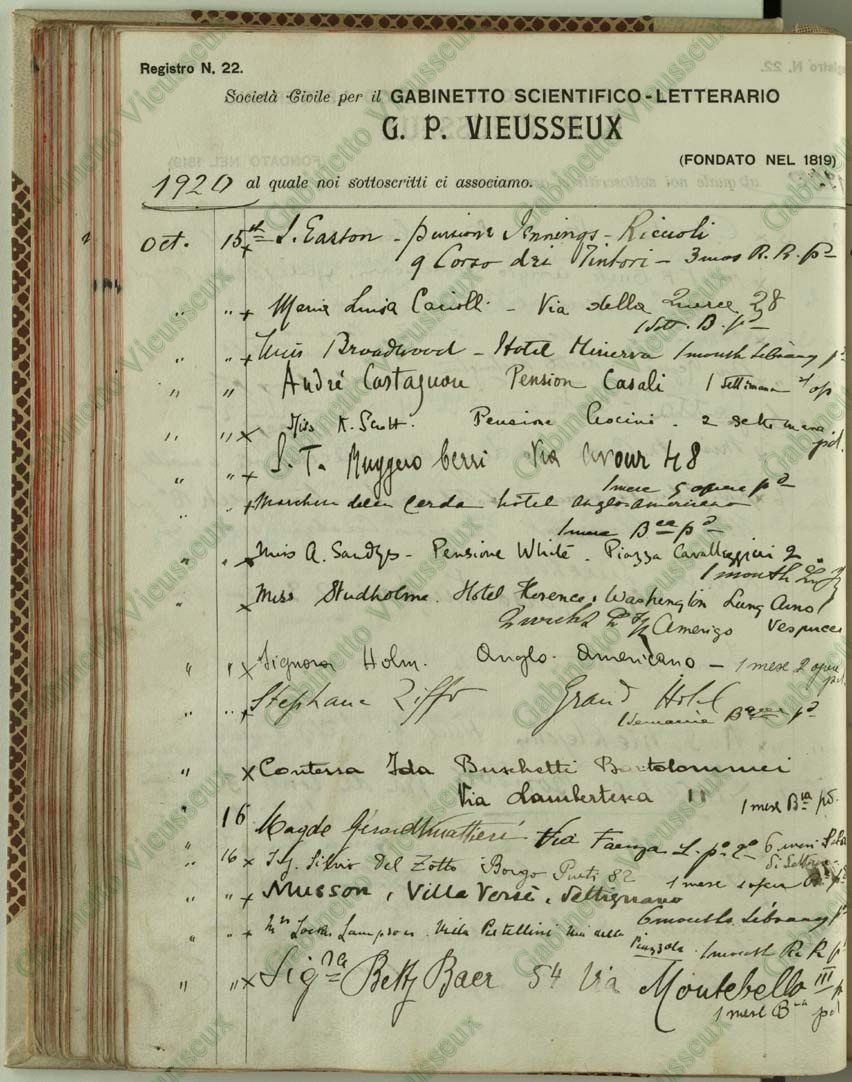 Registro N. 22.
Società Civile per il GABINETTO SCIENTIFICO-LETTERARIO
G. P. VIEUSSEUX
(FONDATO NEL 1819)
1920 al quale noi sottoscritti ci associamo.
Oct. 15th x J. Easton - pensione Jennings - Riccioli
9 Corso dei Tintori - 3 mos R. R. pd
" " x Maria Luisa - Via della Querce 28
1 Sett. B. pd
" " x Miss Broadwood - Hotel Minerva 1 month Library pd
" " André Castagnou Pension Casali 1 settimana 1 op
" " x Miss K. Scott. Pensione Crocini. 2 settimana pd.
" " x S. T. Ruggero Via Cavour 48
1 mese 5 opere pd
" " x Marchese della Cerda hotel Anglo Americano
1 mese Bca pd
" " x Miss A. Sandys - Pensione White. Piazza Cavalleggieri 2
1 month
" x Miss Studholme. Hotel Florence & Washington Lung Arno
Amerigo Vespucci
" " x Signora Holm. Anglo. Americano - 1 mese 2 opere pd.
" " x Stephane Ziffo Grand Hotel
1 semaine pd
" x Contessa Ida Buschetti Bartolommei
Via Lambertesca 11 1 mese Bca pd.
" 16 Magde Via Faenza 6 mesi Sala
di Lettura
" 16 x Silvio Del Zotto Borgo Pinti 82
1 mese 1 opera
" " x Musson, Villa Versé, Settignano
6 months Library pd
" " x Mrs Lampson. Villa Via della
Piazzola. 1 month R. R. pd
" " x Sigra Betty Baer 54 Via Montebello III p
1 mese pd